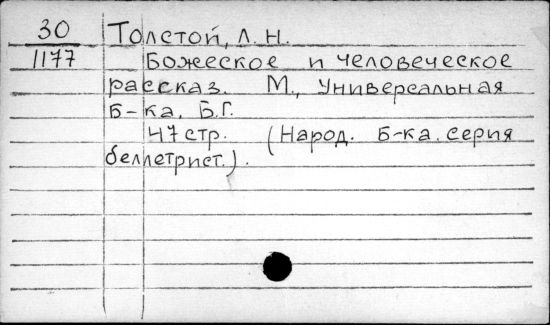 30 Толстой, Л. Н.
1177 Божеское и человеческое
рассказ. М., Универсальная
Б-ка, Б.Г.
47 стр. (Народ. Б-ка. серия
беллетрист.).